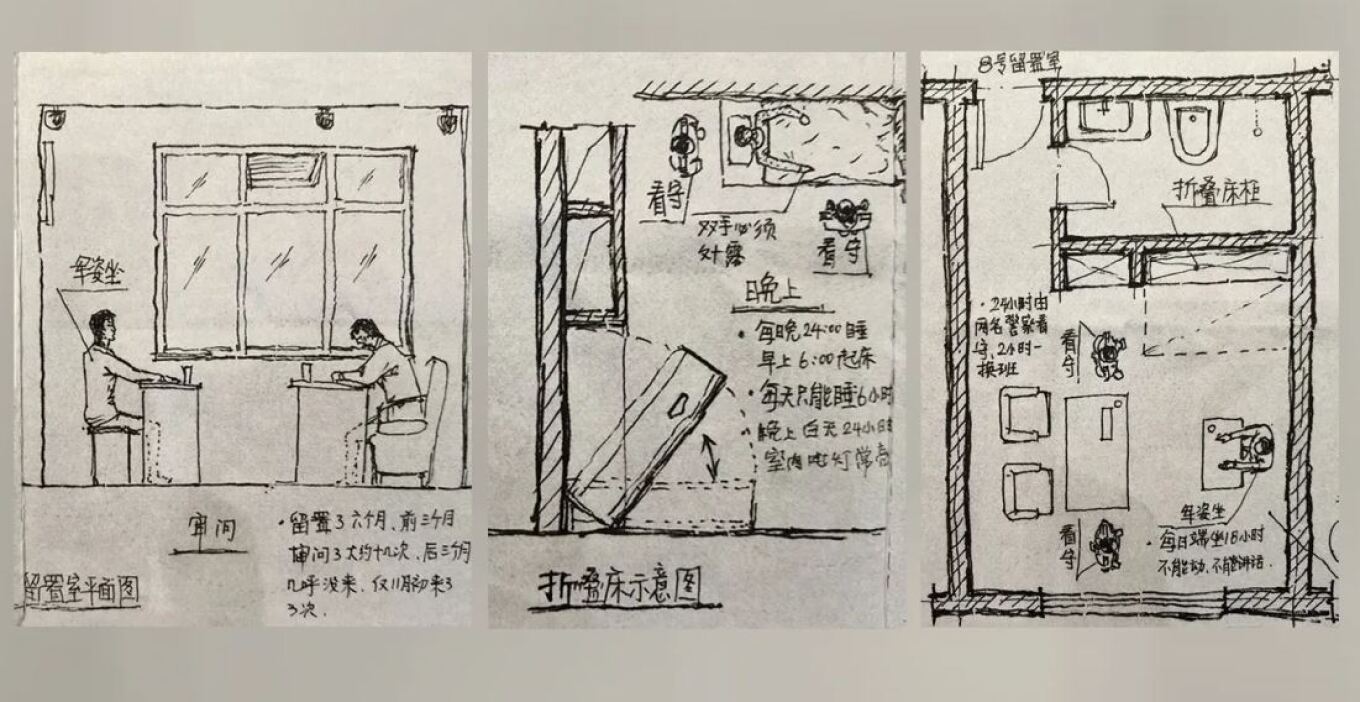 军姿坐
审问
·留置了六个月、前三个月
审问了大约十几次、后三个月
几呼没来、仅11月初来了
3次.
留置室平面图
看守
双手必须
外露
看守
晚上
·每晚24:00睡
早上6:00起床
·每天只能睡6小时
·晚上白天24小时
室内电灯常亮
折叠床示意图
8号留置室
折叠床柜
·24小时由
两名警察看
守、2小时一
换班
看守
看守
军姿坐
·每日端坐18小时
不能动、不能讲话.